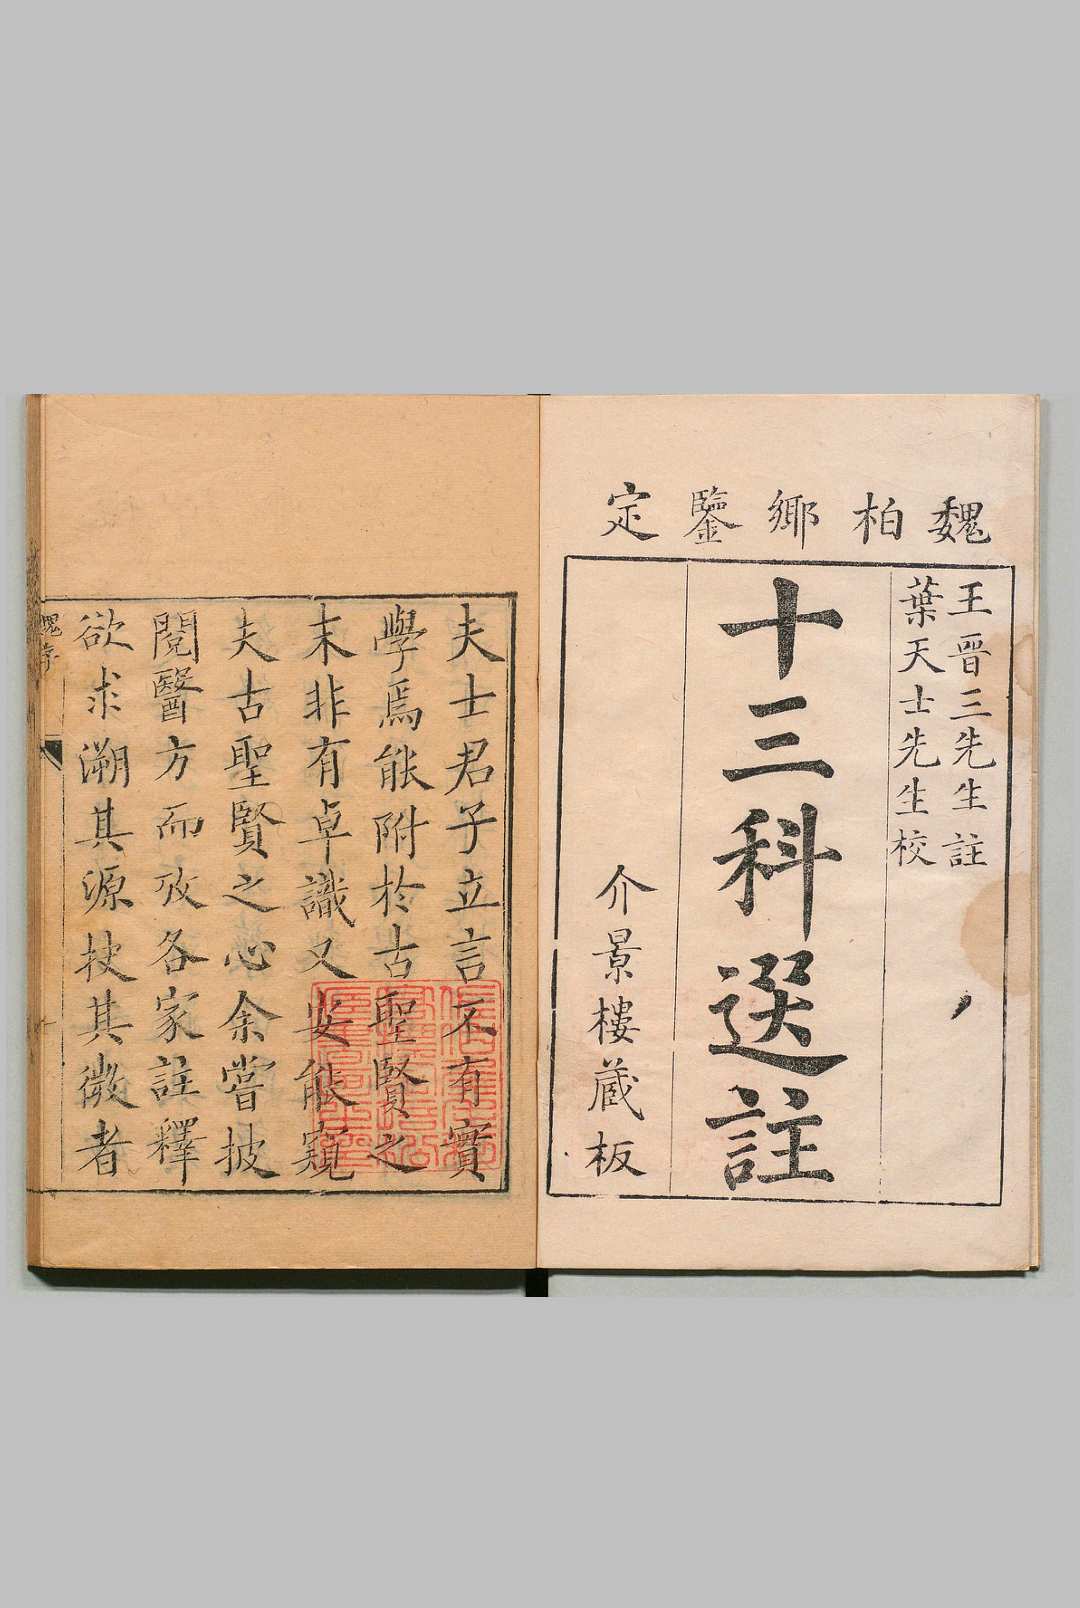 魏柏鄉鑒定
王晋三先生註
葉天士先生校
十三科選註
介景樓蔵板
夫士君子立言不有實
學焉能附於古聖賢之
末非有卓識又安能窺
夫古聖賢之心余嘗披
閱醫方而攷各家註釋
欲求溯其源抉其微者
魏序